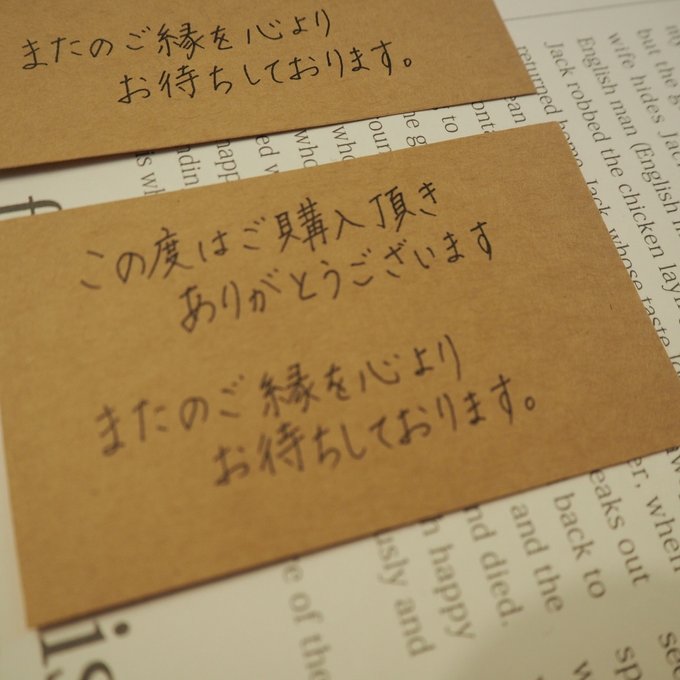 またのご縁を心より
お待ちしております。
この度はご購入頂き
ありがとうございます
またのご縁を心より
お待ちしております。
my
but the g
wife hides Jack
English man (English m
Jack robbed the chicken layin
returned home. Jack, whose taste
ean
conta
to
the g
your
who
who
ed w
happ
ndin
is wh
f
er, when
eaks out
back to
and the
nd died.
h happy
usly and
e of the
is